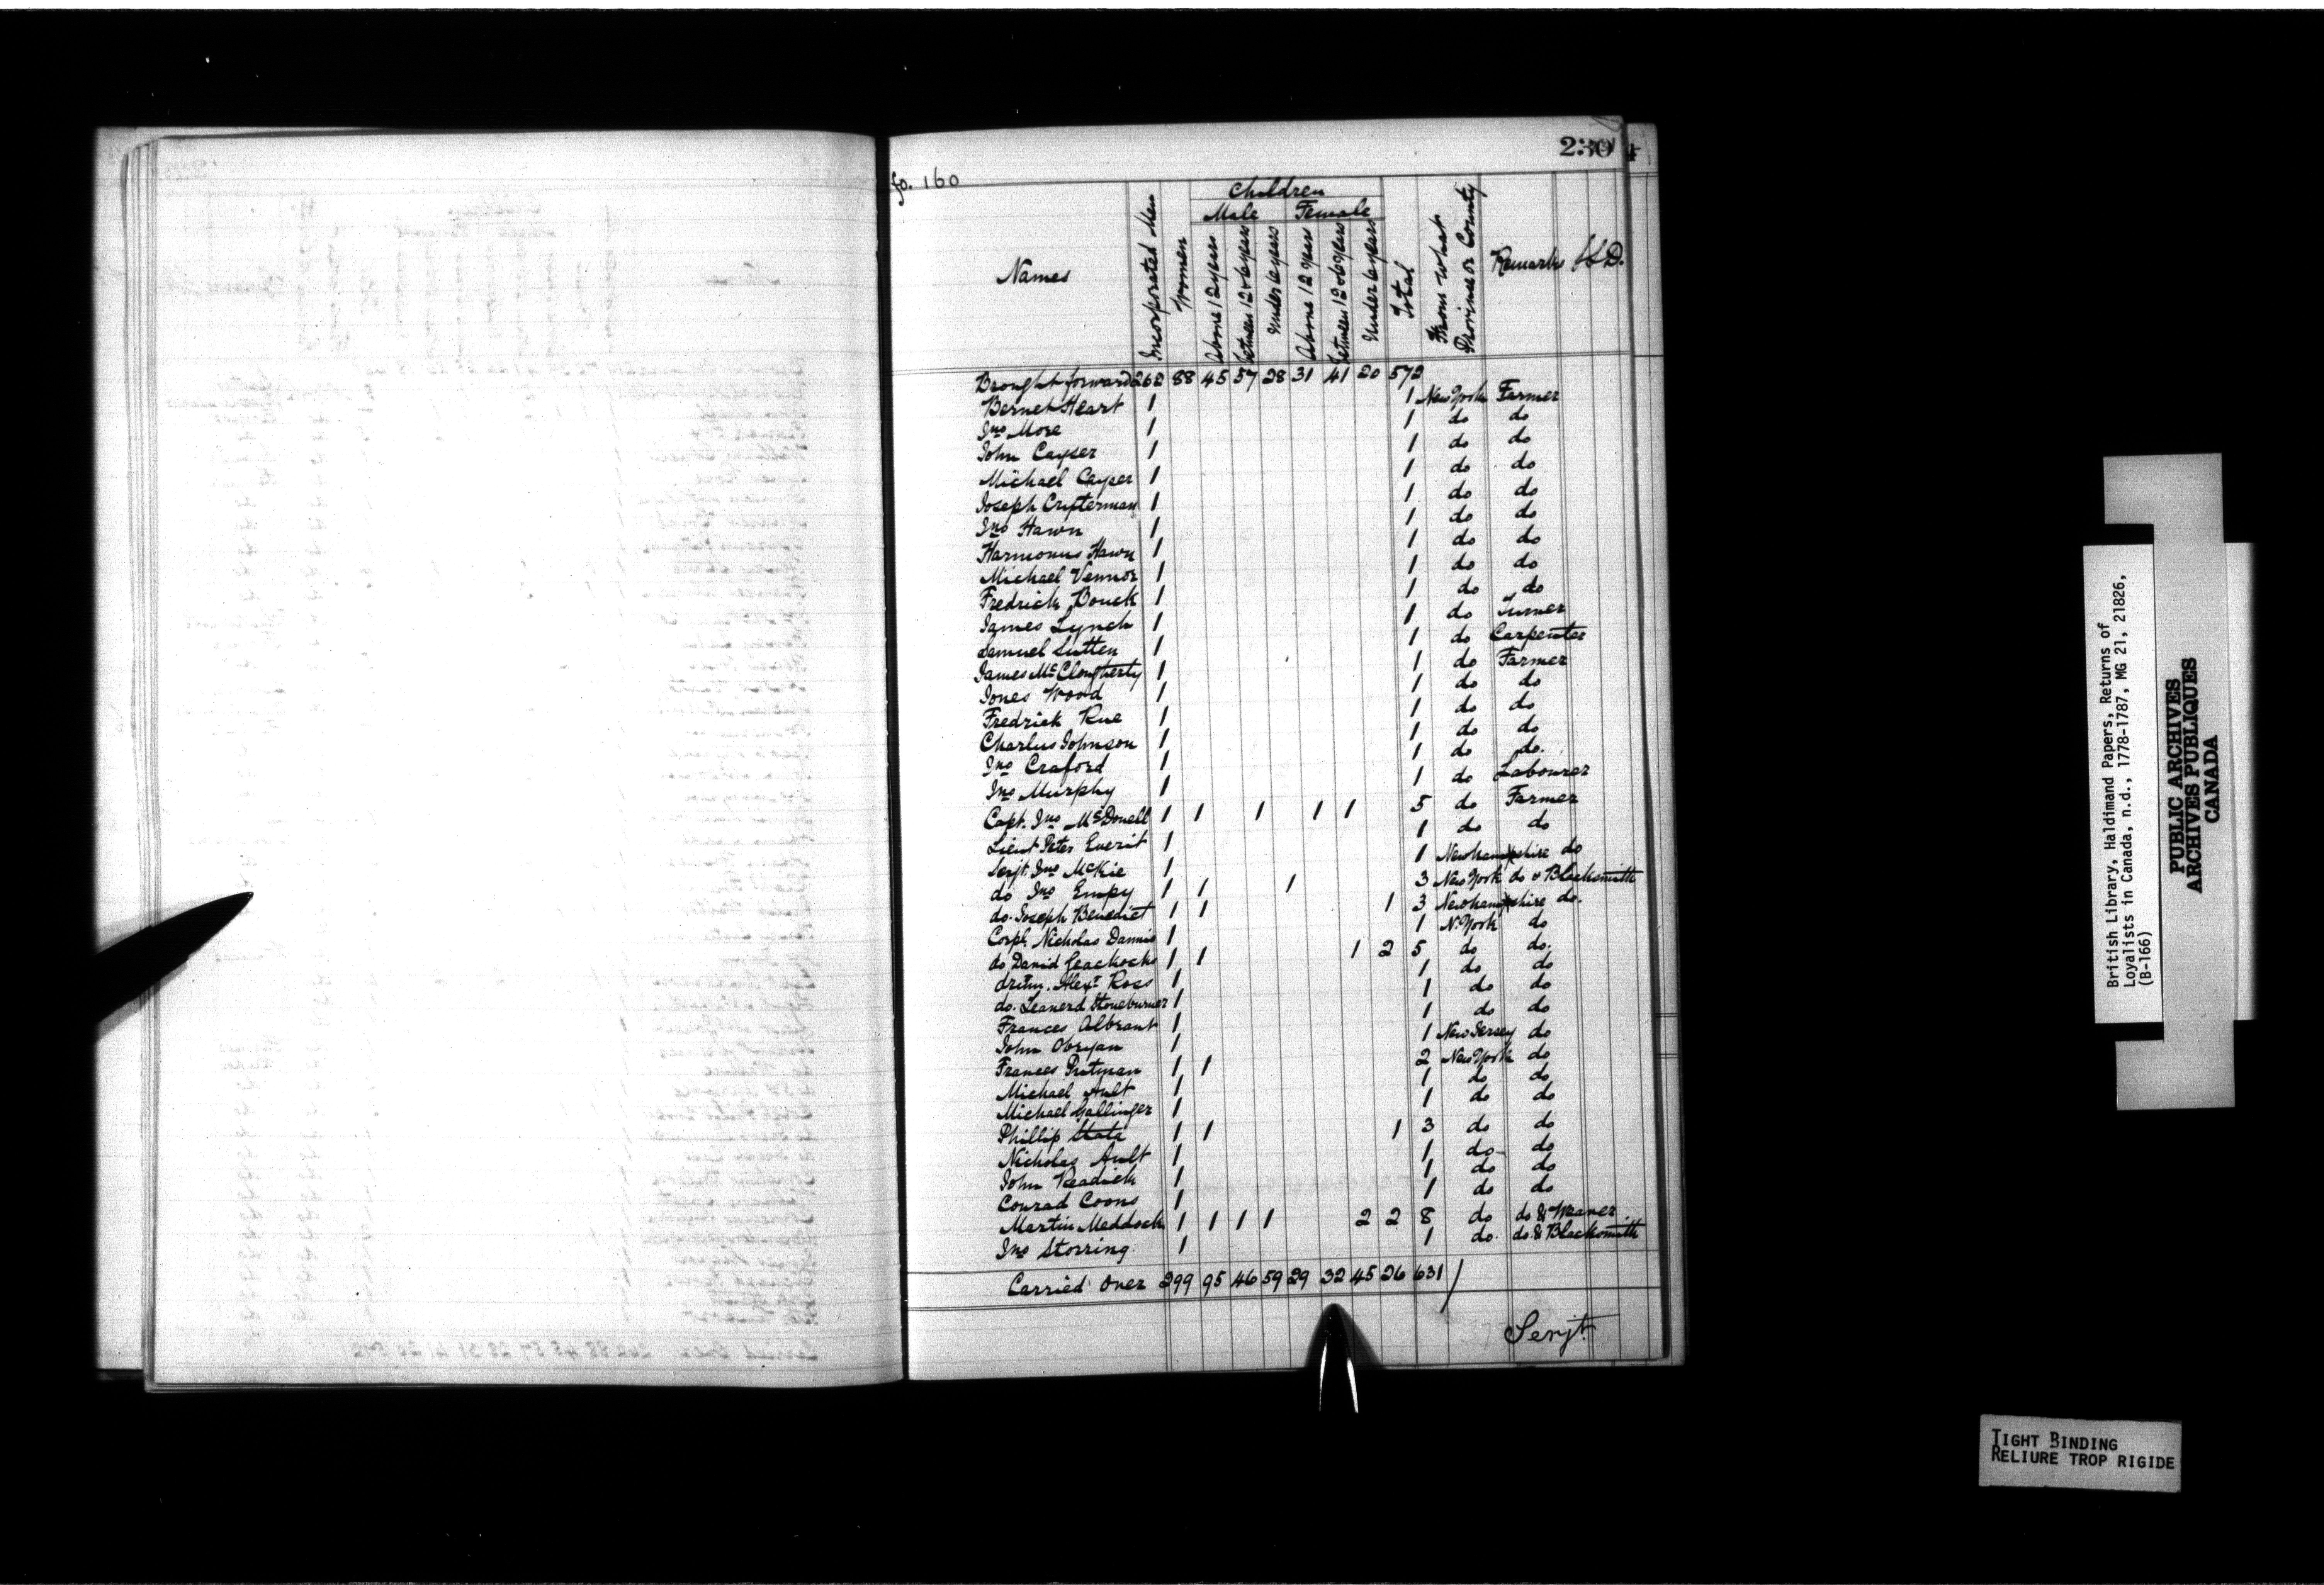 230
fo. 160
Names
Incorporated Men
Women
Children
Male
Female
Above 12 years
between 12 & 6 years
Under 6 years
Above 12 years
between 12 & 6 years
Under 6 years
Total
From what Province or County
Remarks
Brought forward 262 88 45 57 28 31 41 20 572
Bernet Heart 1 1 New York Farmer
Jno More 1 1 do do
John Cayser 1 1 do do
Michael Cayser 1 1 do do
Joseph Cryterman 1 1 do do
Jno Hawn 1 1 do do
Harmonus Hawn 1 1 do do
Michael Vennor 1 1 do do
Fredrick Bouck 1 1 do do
James Lynch 1 1 do Turner
Samuel Sutten 1 1 do Carpenter
James McClougherty 1 1 do Farmer
Jones Wood 1 1 do do
Fredrick Rue 1 1 do do
Charlus Johnson 1 1 do do
Jno Craford 1 1 do do.
Jno Murphy 1 1 do Labourer
Capt. Jno McDonell 1 1 1 1 1 5 do Farmer
Lieut Peter Everit 1 1 do do
Serjt. Jno McKie 1 1 Newhampshire do
do Jno Empy 1 1 1 3 New York do & Blacksmith
do. Joseph Benedict 1 1 1 3 Newhampshire do.
Corpl. Nicholas Dannis 1 1 N. York do
do David Jeackocks 1 1 1 2 5 do do.
drum. Alext Ross 1 1 do do
do. Leanerd Stoneburner 1 1 do do
Frances Albrant 1 1 do do
John Obryan 1 1 New Jersey do
Frances Prutman 1 1 2 New York do
Michael Ault 1 1 do do
Michael Gallinger 1 1 do do
Phillip Stata 1 1 1 3 do do
Nicholas Ault 1 1 do do
John Readick 1 1 do do
Conrad Coons 1 1 do do
Martin Maddock 1 1 1 1 2 2 8 do do & Weaver
Jno Storring 1 1 do. do. & Blacksmith
Carried over 299 95 46 59 29 32 45 26 631
Serjt.
British Library, Haldimand Papers, Returns of
Loyalists in Canada, n.d., 1778-1787, MG 21, 21826,
(B-166)
PUBLIC ARCHIVES
ARCHIVES PUBLIQUES
CANADA
TIGHT BINDING
RELIURE TROP RIGIDE